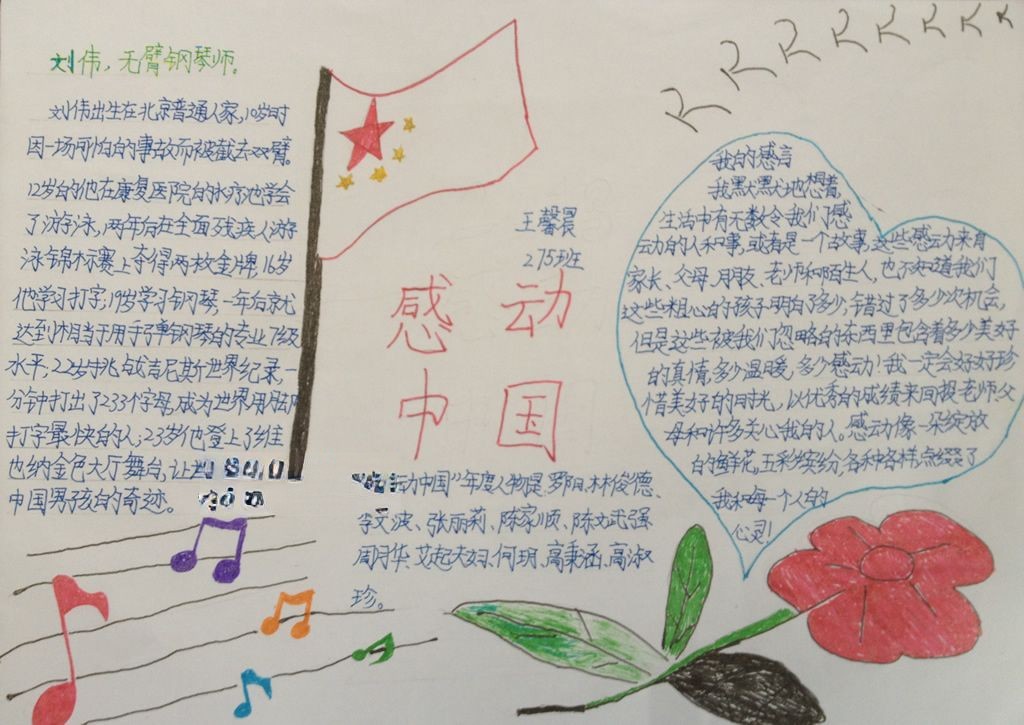 刘伟，无臂钢琴师。
刘伟出生在北京普通人家，10岁时
因一场可怕的事故而被截去双臂。
12岁的他在康复医院的水疗池学会
了游泳，两年后在全面残疾人游
泳锦标赛上夺得两枚金牌，16岁
他学习打字，19岁学习钢琴，一年后就
达到相当于用手弹钢琴的专业7级
水平，22岁挑战吉尼斯世界纪录，一
分钟打出了233个字母，成为世界用脚
打字最快的人；23岁他登上了维
也纳金色大厅舞台，让
中国男孩的奇迹。
王馨晨
275班
感动
中国
动中国"年度人物是、罗阳、林俊德、
李文波、张丽莉、陈家顺、陈斌强
周月华、艾起夫妇、何玥、高秉涵、高淑
珍。
我的感言
我默默地想着，
生活中有无数令我们感
动的人和事，或者是一个故事，这些感动来自
家长、父母、朋友、老师和陌生人，也不知道我们
这些粗心的孩子明白了多少，错过了多少次机会，
但是这些被我们忽略的东西里包含着多少美好
的真情，多少温暖，多少感动！我一定会好好珍
惜美好的时光，以优秀的成绩来回报老师父
母和许多关心我的人。感动像一朵绽放
的鲜花，五彩缤纷，各种各样，点缀了
我和每一个人的
心灵！